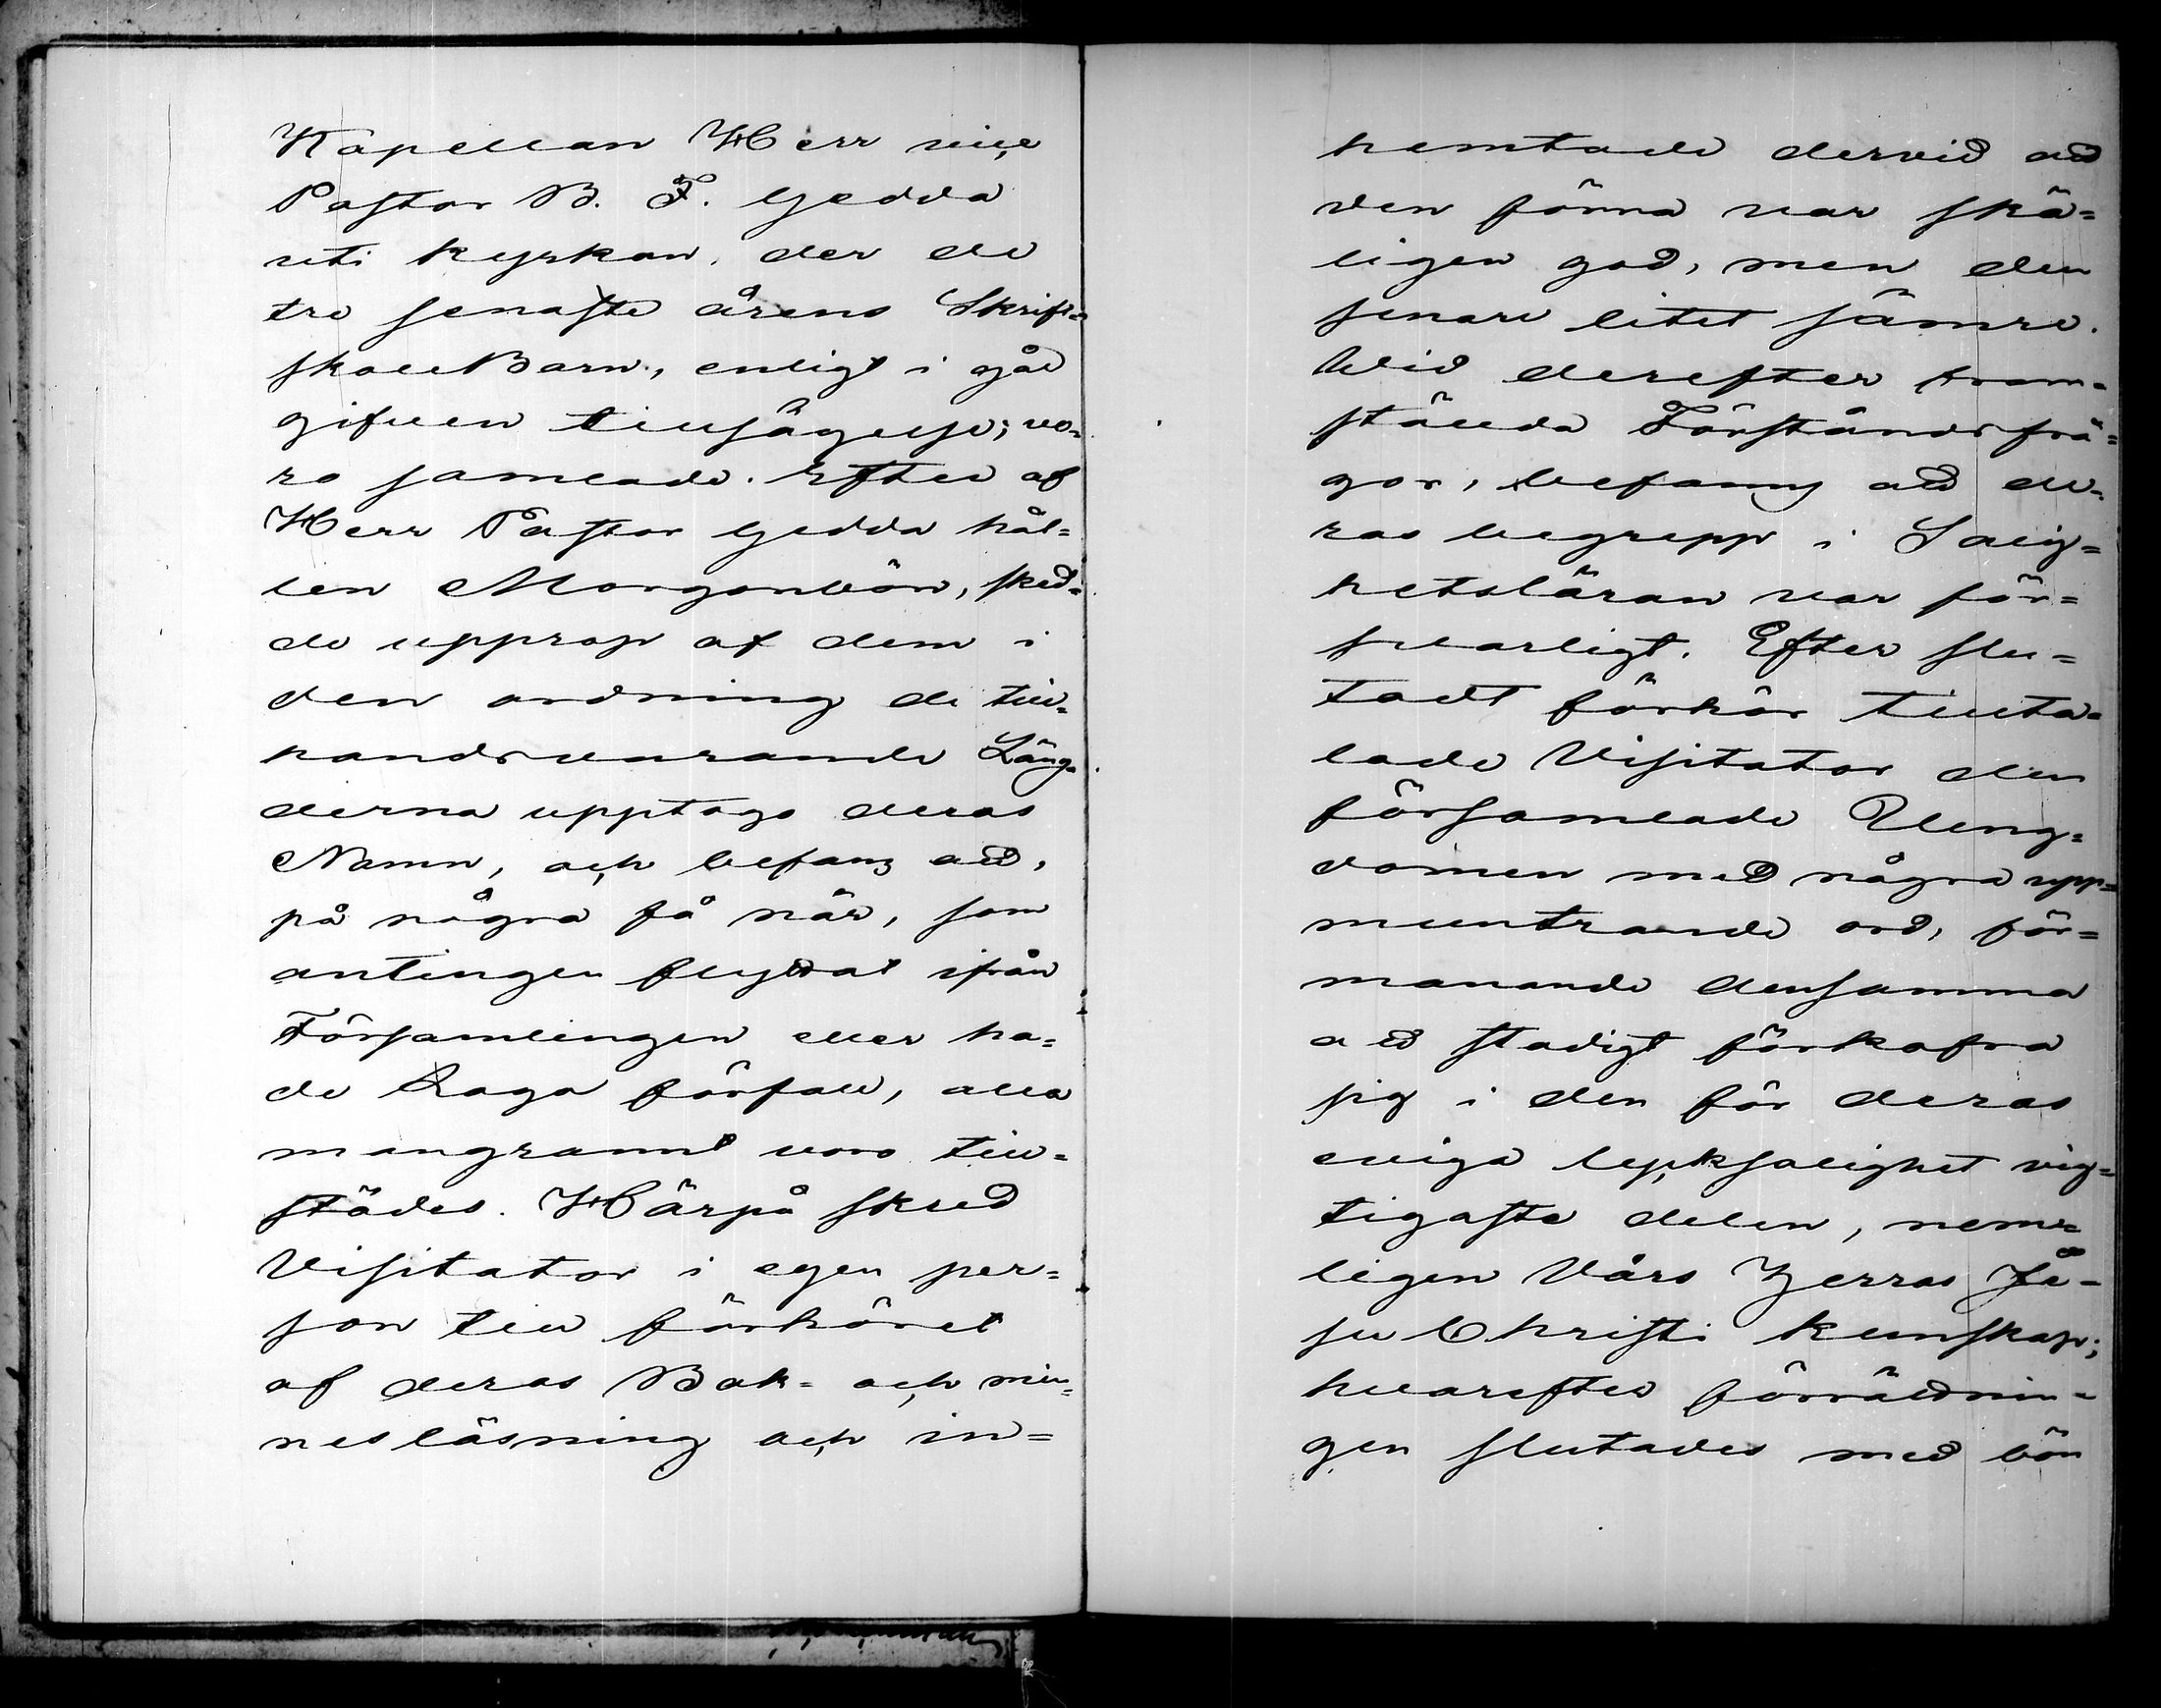 Kapellan Herr vice
Pastor B. F. Gedda
uti kyrkan, der de
tre senaste årens Skrift=
skolbarn, enligt i går
gifven tillsägelse, vo=
ro samlade. Efter af
Herr Pastor Gedda hål=
len Morgonbön, sked=
de upprop af dem i
den ordning de till=
handsvarande Läng=
derna upptogo deras
Namn, och befans att,
på några få när, som
antingen flyttat ifrån
Församlingen eller ha=
de Laga förfall, alla
mangrannt voro till=
städes. Härpå skred
Visitator i egen per=
son till förhöret
af deras Bok= och min=
nesläsning och in=
hemtade dervid att
den förra var skä=
ligen god, men den
senare litet sämre.
Wid derefter fram=
stälda Förståndsfrå=
gor, befanns att de=
ras begrepp i Salig=
hetsläran var för=
svarligt. Efter slu=
tadt förhör tillta=
lade Visitator den
församlade Ung=
domen med några upp=
muntrande ord, för=
manande densamma
att stadigt förkofra
sig i den för deras
eviga lycksalighet vig=
tigaste delen, nem=
ligen Vårs Herras Je=
su Christi kunskap;
hvarefter förrättnin=
gen slutades med bön